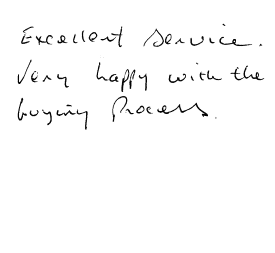 Excellent service.
Very happy with the
buying process.